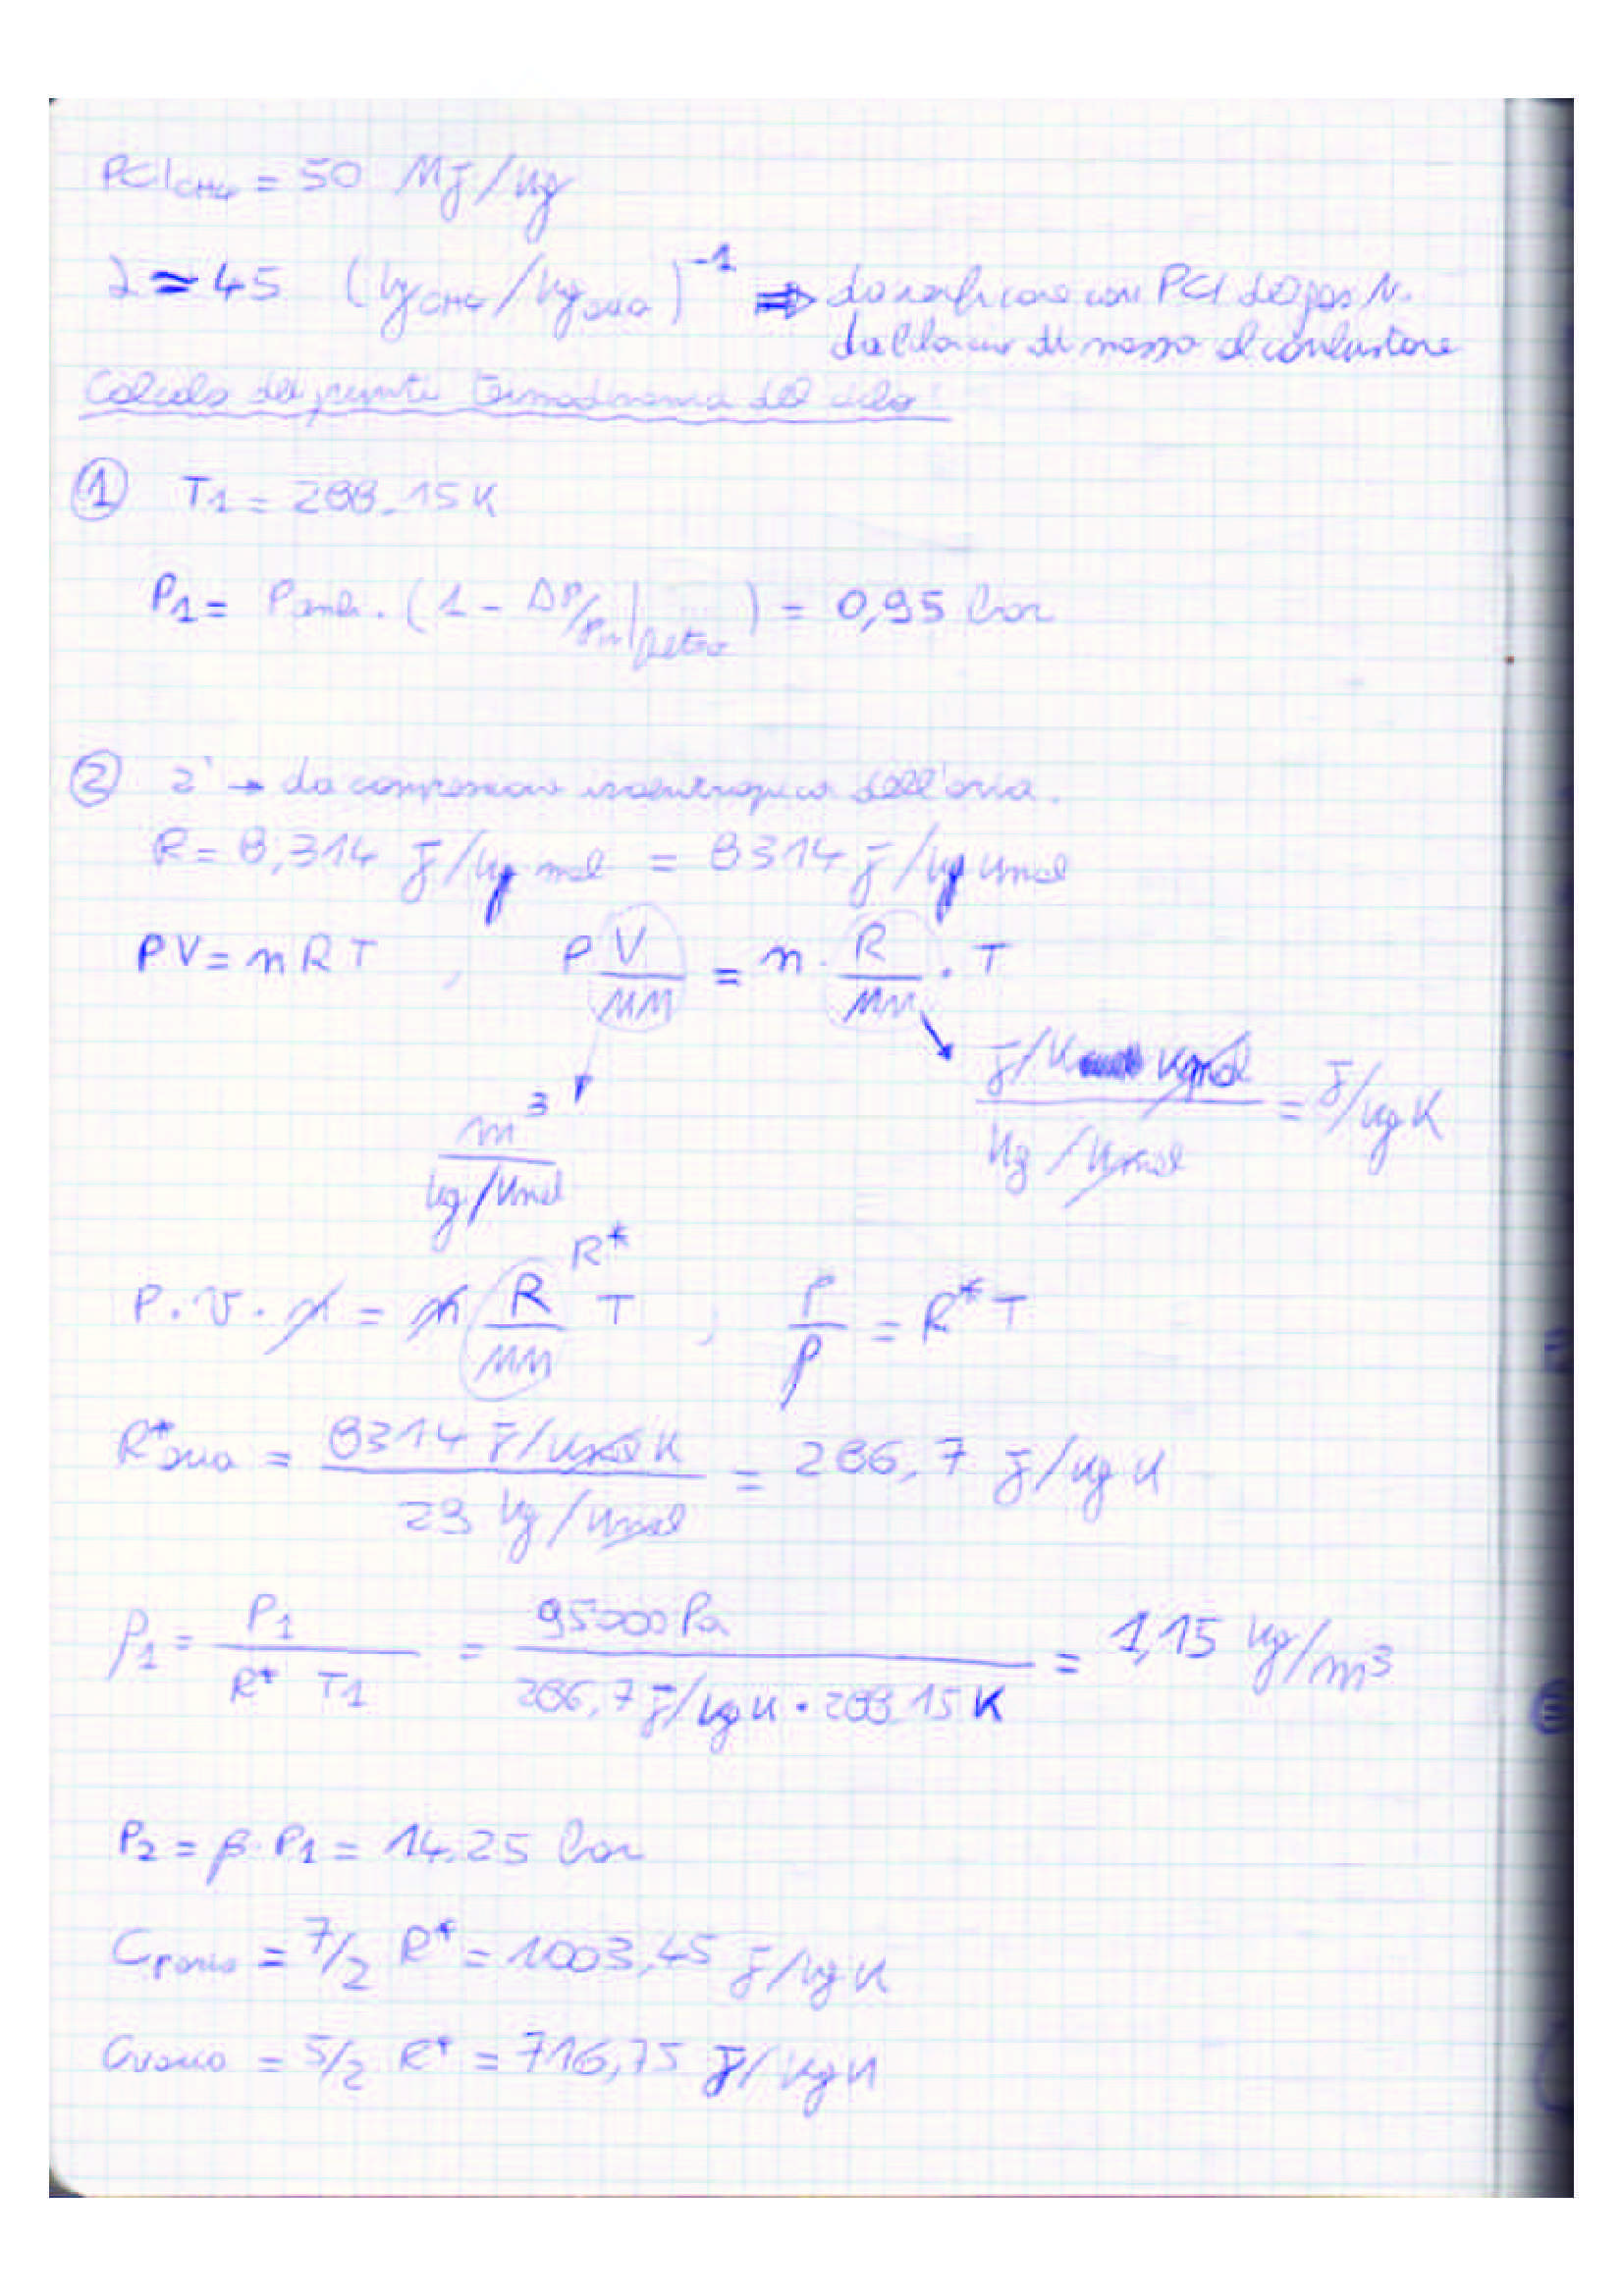 PCI CH4 = 50 MJ/kg
λ ≃ 45 (kg CH4/kg aria)⁻¹ ⇒ da verificare con PCI del gas N.
dal bilancio di massa al combustore
Calcolo dei punti termodinamici del ciclo
① T1 = 288.15 K
P1 = Pamb. (1 - ΔP/Pin|filtro) = 0,95 bar
② 2' → da compressione isoentropica dell'aria.
R = 8,314 J/kg mol = 8314 J/kg kmol
PV = nRT , P V/MM = n · R/MM · T
J/K kmol / kg/kmol = J/kg K
m³ / kg/kmol
R*
P · v · n = n R/MM T ; P/ρ = R* T
R*aria = 8314 J/kmol K / 29 kg/kmol = 286,7 J/kg K
ρ1 = P1 / R* T1 = 95000 Pa / 286,7 J/kg K · 288.15 K = 1,15 kg/m³
P2 = β · P1 = 14.25 bar
Cp aria = 7/2 R* = 1003,45 J/kg K
Cv aria = 5/2 R* = 716,75 J/kg K